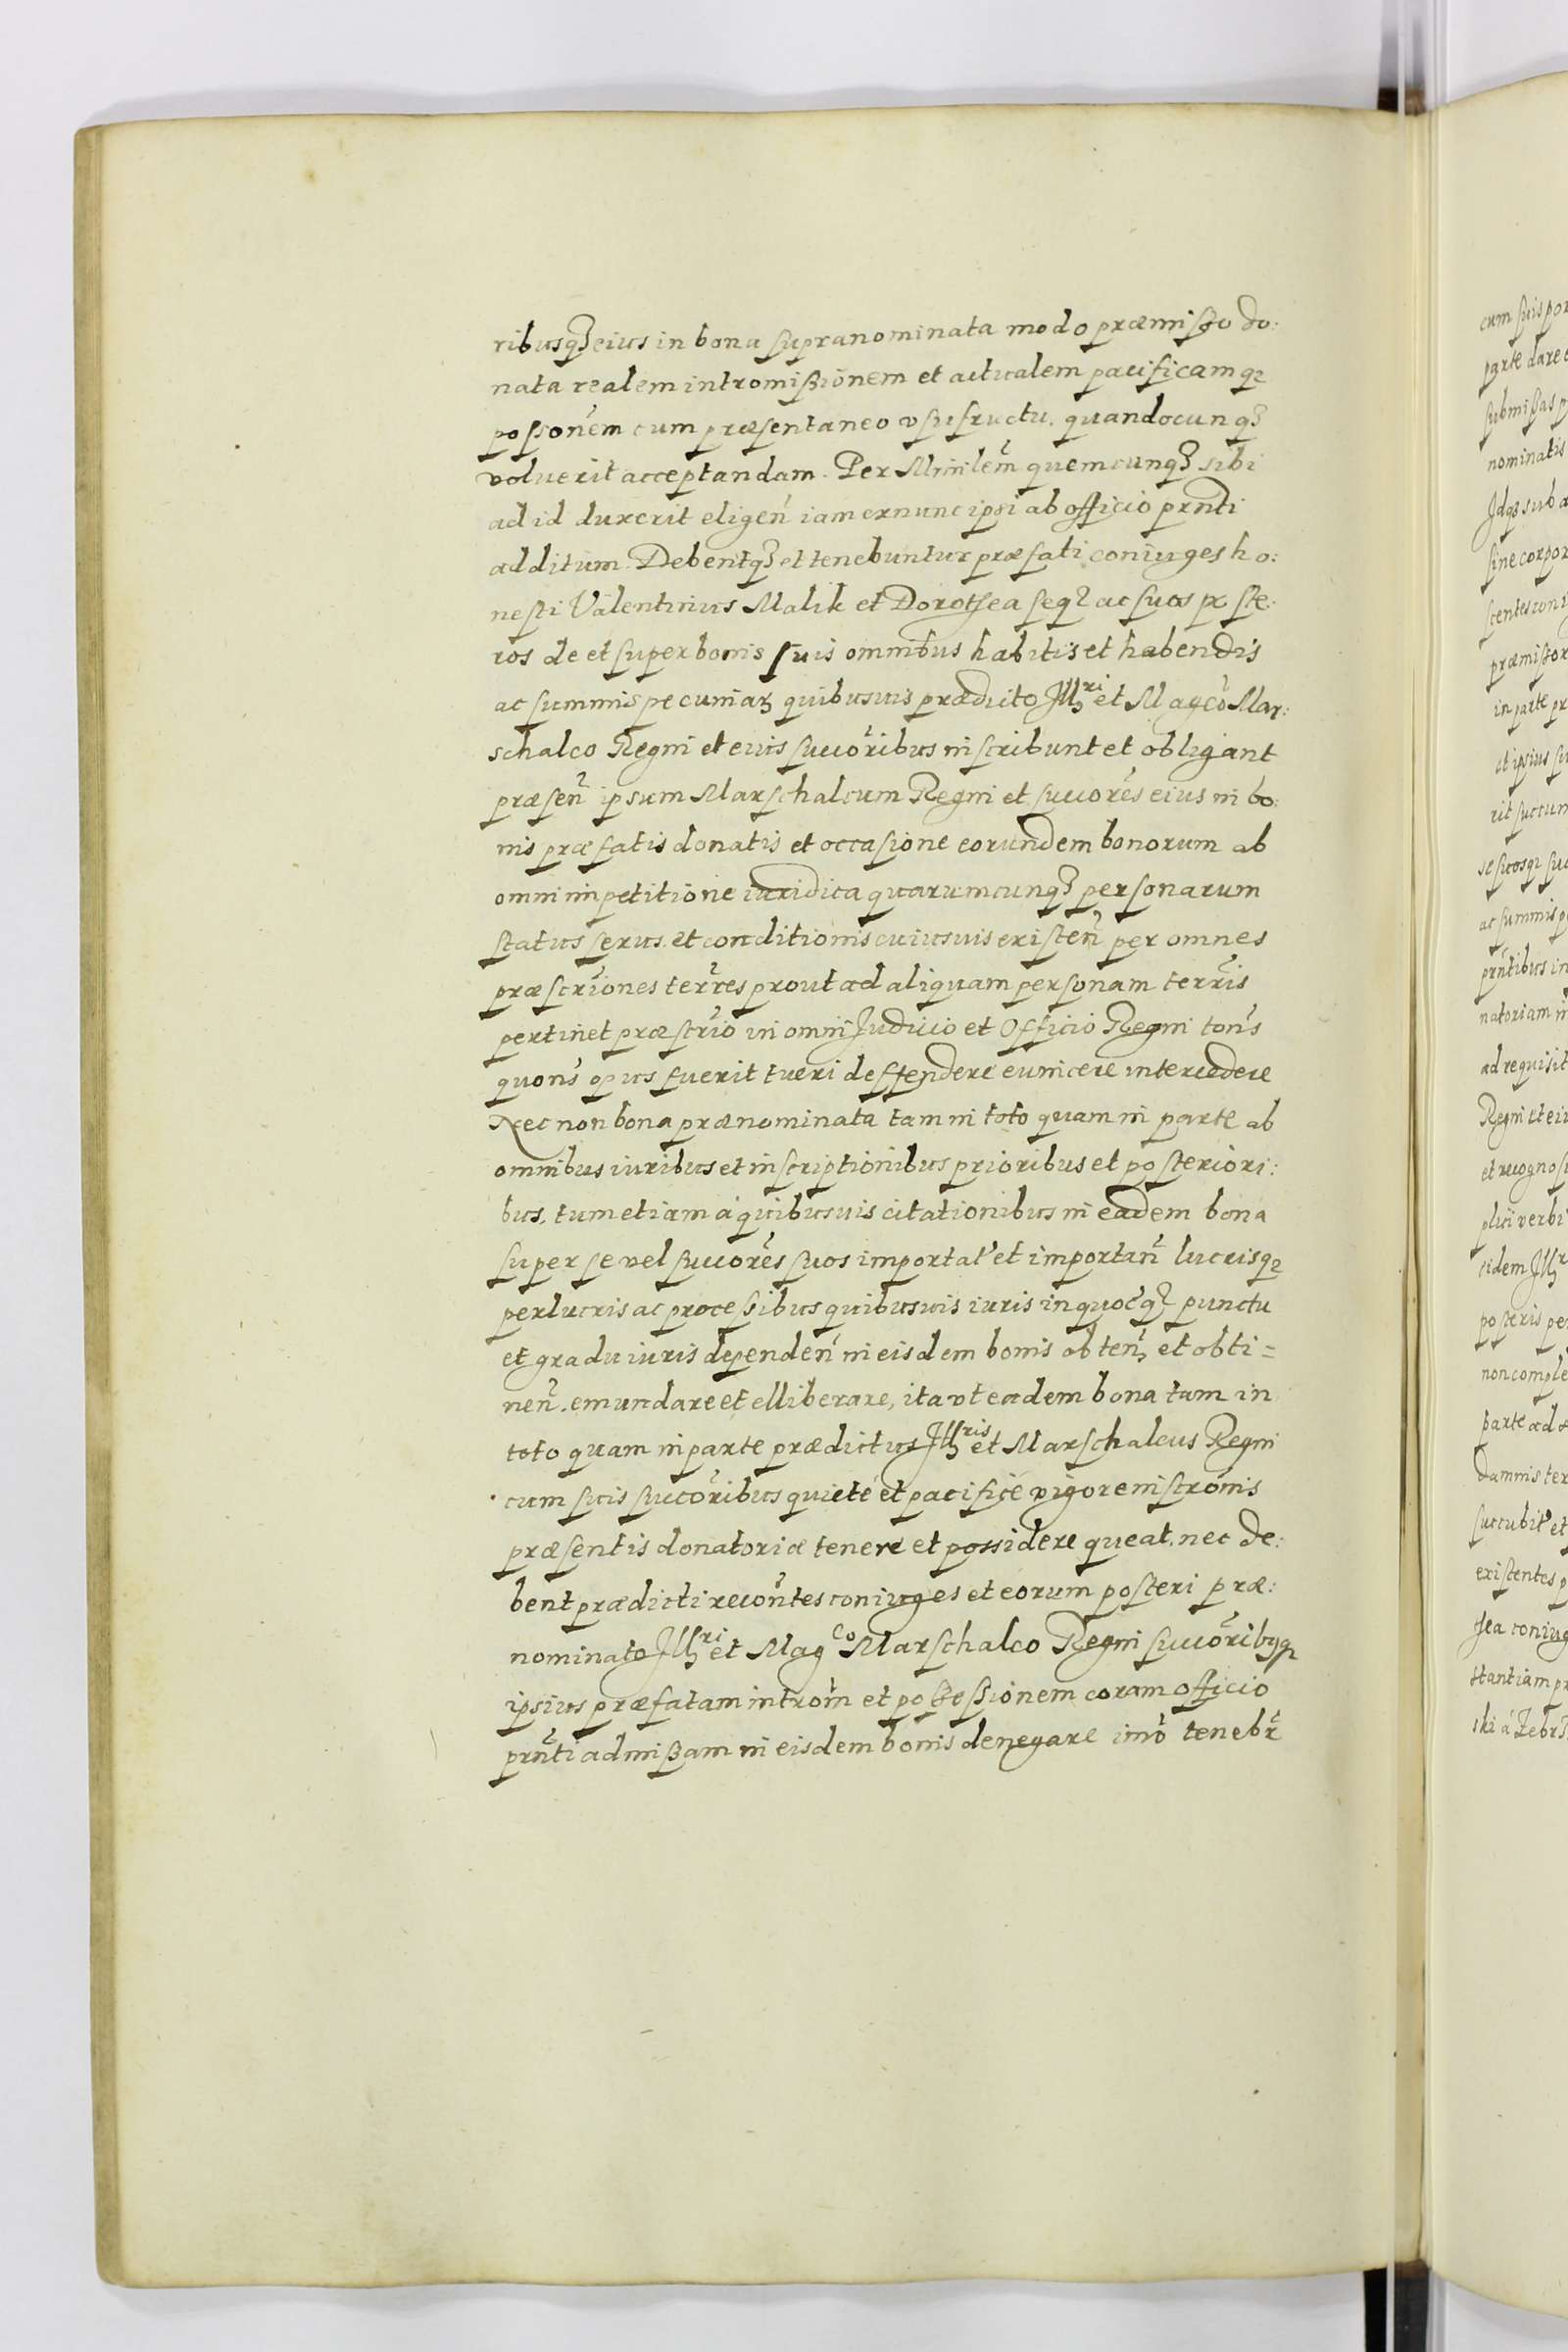 ribusq3 eius in bona supranominata modo præmißo do:
nata realem intromißionem et actualem pacificamq3
possonem cum præsentaneo vsufructu. quandocunq3
voluerit acceptandam. Per Minlem quemcunq3 sibi
ad id duxerit eligen iam exnunc ipsi ab officio prnti
additum. Debentq3 et tenebuntur præfati coniuges ho:
nesti Valentinus Malik et Dorothea seq3 ac suos poste:
ros de et super bonis suis omnibus habitis et habendis
ac summis pecuniar quibusuis prædicto Jllri et Magco Mar:
schalco Regni et eius succoribus inscribunt et obligant
præsen ipsum Marschalcum Regni et succores eius in bo:
nis præfatis donatis et occasione eorundem bonorum ab
omni impetitione iuridica quarumcunq3 personarum
status sexus et conditionis cuiusuis existen per omnes
præscriones terres prout ad aliquam personam terris
pertinet præscrio in omni Judicio et Officio Regni tons
quons opus fuerit tueri deffendere euincere intercedere
Nec non bona prænominata tam in toto quam in parte ab
omnibus iuribus et inscriptionibus prioribus et posteriori:
bus, tum etiam á quibusuis citationibus in eadem bona
super se vel succores suos importat et importan lucrisq3
perlucris ac processibus quibusuis iuris in quocq3 punctu
et gradu iuris dependen in eisdem bonis obten et obti=
nen. emundare et elliberare, ita vt eadem bona tam in
toto quam in parte prædictus Jllris et Marschalcus Regni
cum suis succoribus quieté et pacificé vigore inscronis
præsentis donatoriæ tenere et possidere queat. nec de:
bent prædicti recontes coniuges et eorum posteri præ:
nominato Jllri et Magco Marschalco Regni succoribusq3
ipsius præfatam introm et poßeßionem coram officio
prnti admißam in eisdem bonis denegare imo tenebr